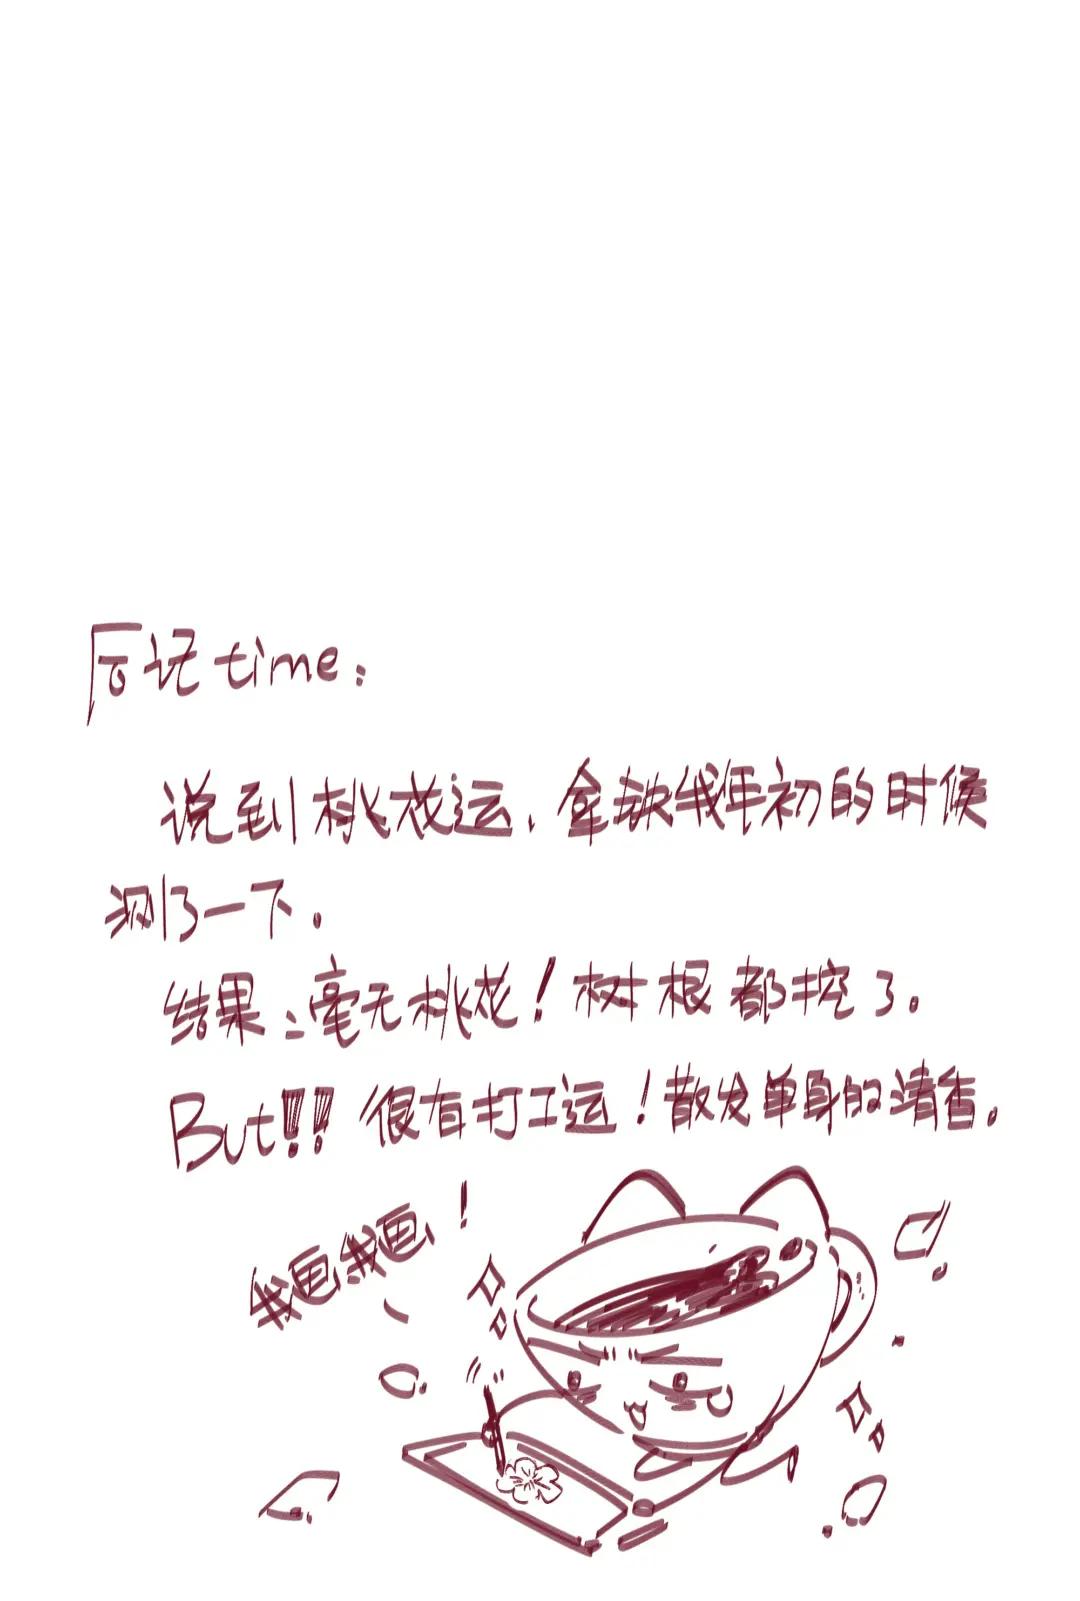 后记time:
说到桃花运,拿铁线年初的时候
测了一下。
结果:毫无桃花!树根都挖了。
But!!! 很有打工运!散发单身的清香。
我画我画!